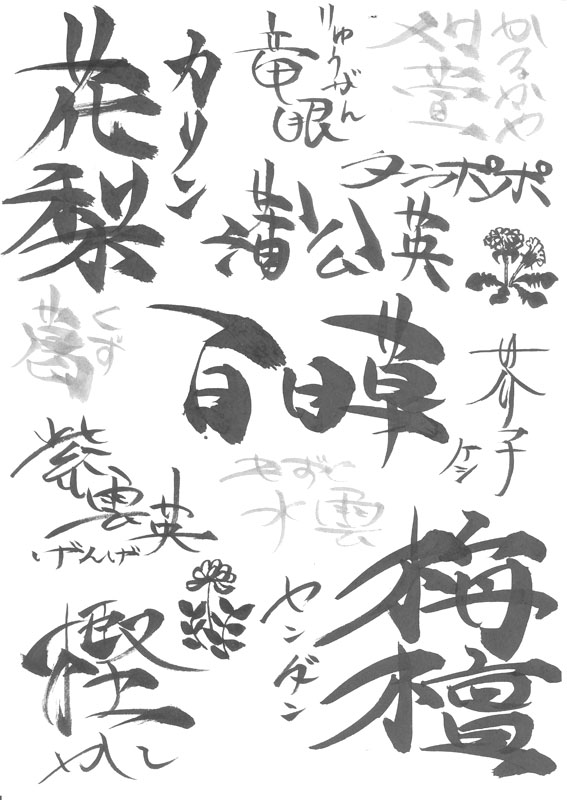 花梨
カリン
竜眼
りゅうがん
刈萱
かるかや
タンポポ
蒲公英
葛
くず
百日草
芥子
ケシ
紫雲英
げんげ
もずく
水雲
樫
かし
栴檀
センダン